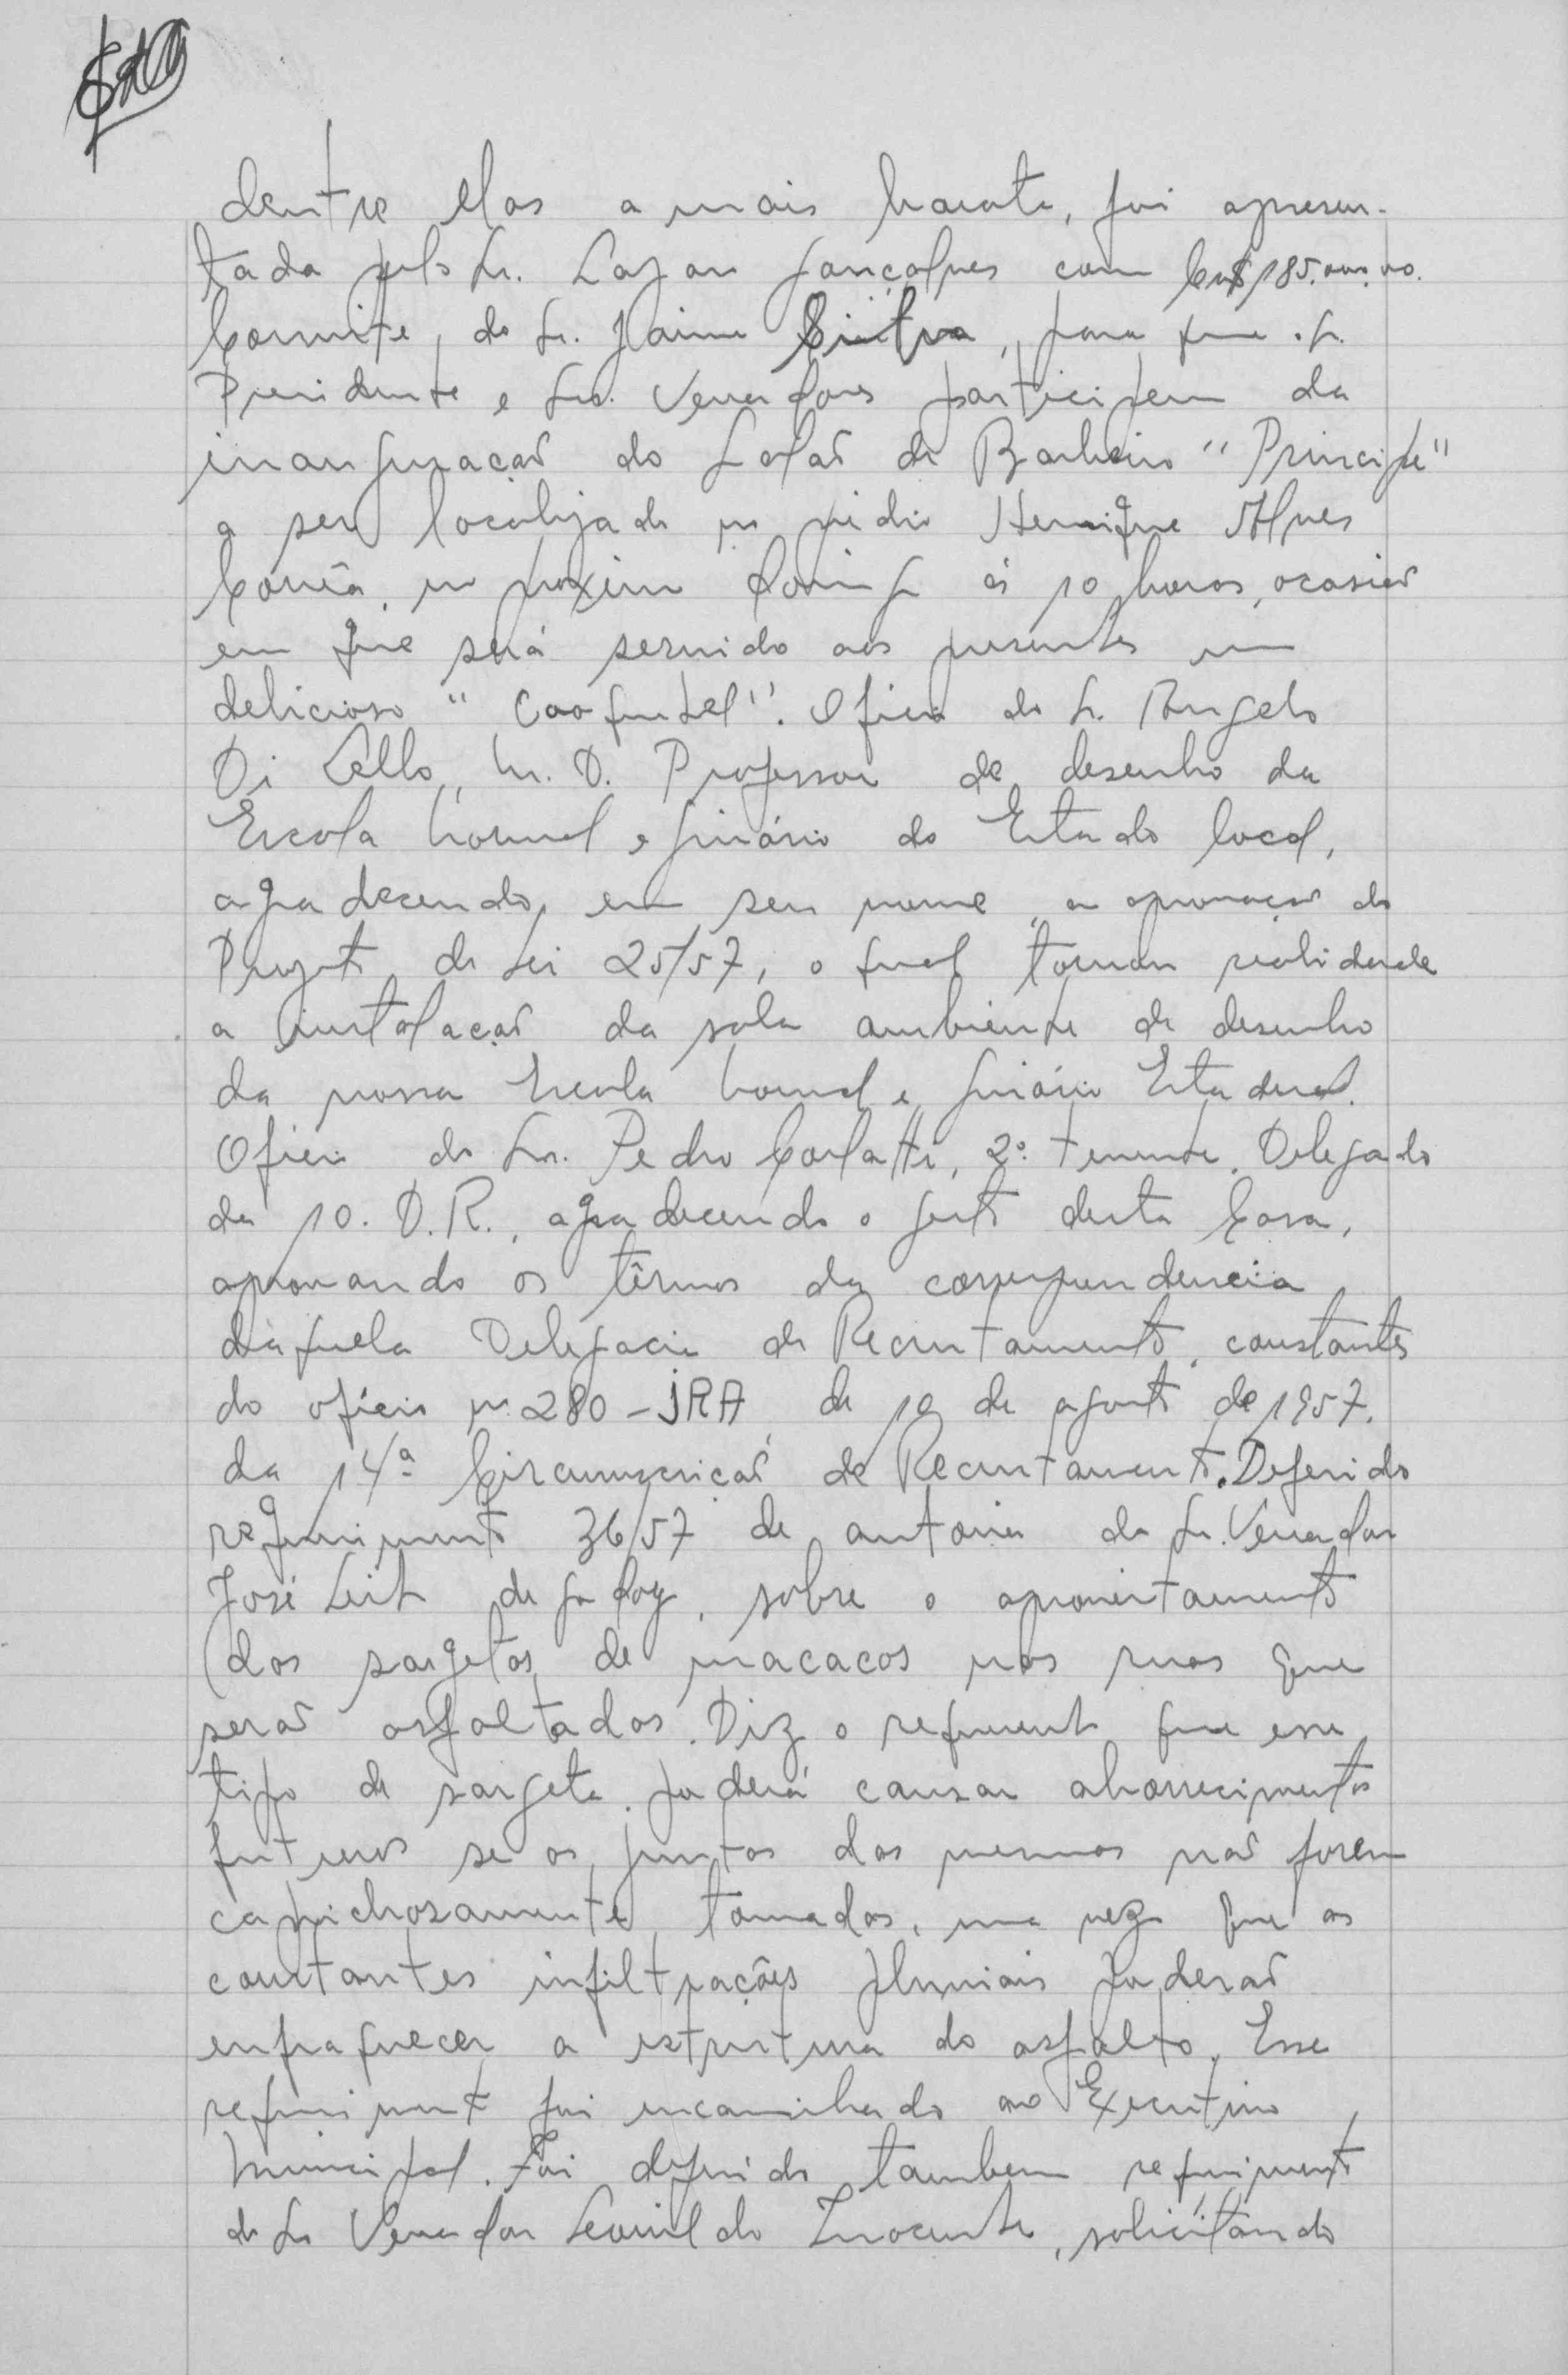 dentre elas a mais barata, foi apresen-
tada pelo Sr. Lazaro Gonçalves com Cr$ 185.000,00.
Convite, do Sr. Jaime, para que o Sr.
Presidente e Srs. Vereadores participem da
inauguração do Salão de Barbeiro "Principe"
a ser localizado no prédio Henrique Alves
Corrêa, no proximo domingo ás 10 horas, ocasião
em que será servido aos presentes um
delicioso "". Oficio do Sr. Angelo
Di Lello, M. D. Professor de desenho da
Escola Normal e Ginásio do Estado local,
agradecendo, em seu nome, a aprovação do
Projeto de Lei 25/57, o qual tornou realidade
a instalação da sala ambiente de desenho
da nossa Escola Normal e Ginásio Estadual.
Oficio do Sr. Pedro, 2º tenente, Delegado
da 10. D.R., agradecendo o gesto desta Casa,
aprovando os têrmos da correspondencia
daquela Delegacia de Recrutamento, constantes
do ofício nº 280-JRA, de 10 de agosto de 1957,
da 14ª Circunscrição de Recrutamento. Deferido
requerimento 36/57 de autoria do Sr. Vereador
José Leite de Godoy, sobre o aproveitamento
das sargetas de macacos nas ruas que
serão asfaltadas. Diz o requerente que esse
tipo de sargeta poderá causar aborrecimentos
futuros se as juntas das mesmas não forem
caprichosamente tomadas, uma vez que as
constantes infiltrações pluviais poderão
enfraquecer a estrutura do asfalto. Esse
requerimento foi encaminhado ao Executivo
Municipal. Foi deferido tambem requerimento
do Sr Vereador Leonildo Inocente, solicitando